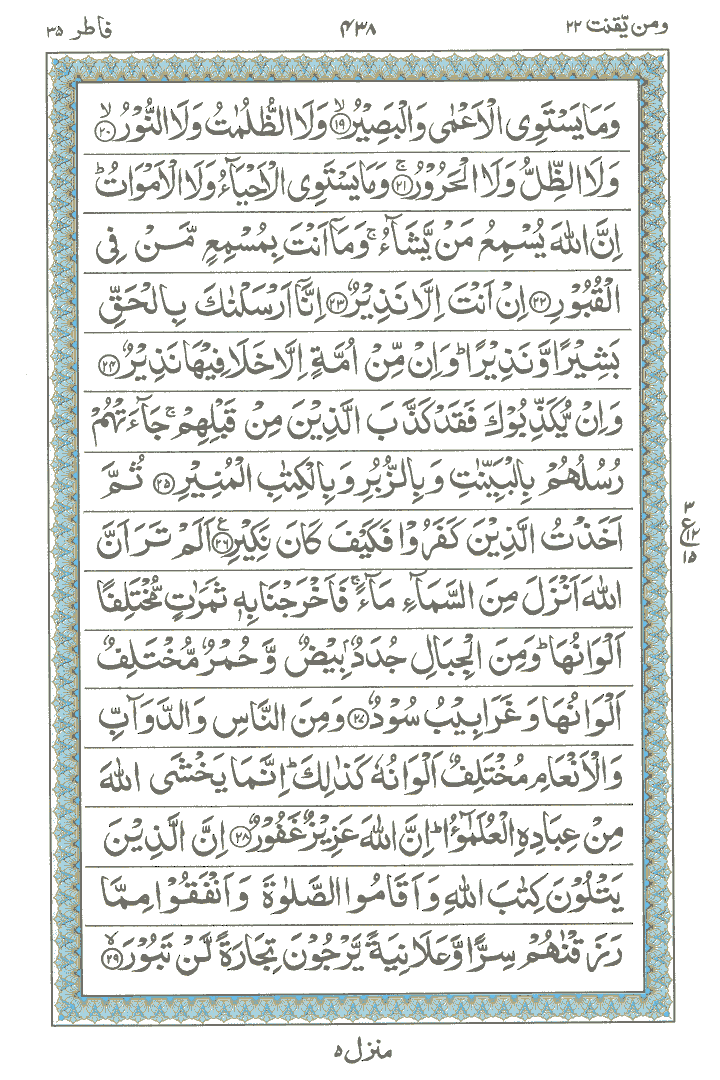 ومن یّقنت ۲۲ ۴۳۸ فاطر ۳۵
وَمَا يَسْتَوِى الْاَعْمٰى وَالْبَصِيْرُ ۙ‏﴿۱۹﴾ وَلَا الظُّلُمٰتُ وَلَا النُّوْرُ ۙ‏﴿۲۰﴾
وَلَا الظِّلُّ وَلَا الْحَرُوْرُ ۚ‏﴿۲۱﴾ وَمَا يَسْتَوِى الْاَحْيَآءُ وَلَا الْاَمْوَاتُ ؕ
اِنَّ اللّٰهَ يُسْمِعُ مَنْ يَّشَآءُ ۚ وَمَاۤ اَنْتَ بِمُسْمِعٍ مَّنْ فِى
الْقُبُوْرِ ﴿۲۲﴾ اِنْ اَنْتَ اِلَّا نَذِيْرٌ ﴿۲۳﴾ اِنَّاۤ اَرْسَلْنٰكَ بِالْحَقِّ
بَشِيْرًا وَّنَذِيْرًا ؕ وَاِنْ مِّنْ اُمَّةٍ اِلَّا خَلَا فِيْهَا نَذِيْرٌ ﴿۲۴﴾
وَاِنْ يُّكَذِّبُوْكَ فَقَدْ كَذَّبَ الَّذِيْنَ مِنْ قَبْلِهِمْ ۚ جَآءَتْهُمْ
رُسُلُهُمْ بِالْبَيِّنٰتِ وَبِالزُّبُرِ وَبِالْكِتٰبِ الْمُنِيْرِ ﴿۲۵﴾ ثُمَّ
اَخَذْتُ الَّذِيْنَ كَفَرُوْا فَكَيْفَ كَانَ نَكِيْرِ ﴿۲۶﴾ع اَلَمْ تَرَ اَنَّ
۳ ع ۱۲ ۱۵
اللّٰهَ اَنْزَلَ مِنَ السَّمَآءِ مَآءً ۚ فَاَخْرَجْنَا بِهٖ ثَمَرٰتٍ مُّخْتَلِفًا
اَلْوَانُهَا ؕ وَمِنَ الْجِبَالِ جُدَدٌۢ بِيْضٌ وَّحُمْرٌ مُّخْتَلِفٌ
اَلْوَانُهَا وَغَرَابِيْبُ سُوْدٌ ﴿۲۷﴾ وَمِنَ النَّاسِ وَالدَّوَآبِّ
وَالْاَنْعَامِ مُخْتَلِفٌ اَلْوَانُهٗ كَذٰلِكَ ؕ اِنَّمَا يَخْشَى اللّٰهَ
مِنْ عِبَادِهِ الْعُلَمٰٓؤُا ؕ اِنَّ اللّٰهَ عَزِيْزٌ غَفُوْرٌ ﴿۲۸﴾ اِنَّ الَّذِيْنَ
يَتْلُوْنَ كِتٰبَ اللّٰهِ وَاَقَامُوا الصَّلٰوةَ وَاَنْفَقُوْا مِمَّا
رَزَقْنٰهُمْ سِرًّا وَّعَلَانِيَةً يَّرْجُوْنَ تِجَارَةً لَّنْ تَبُوْرَ ۙ‏﴿۲۹﴾
منزل ۵